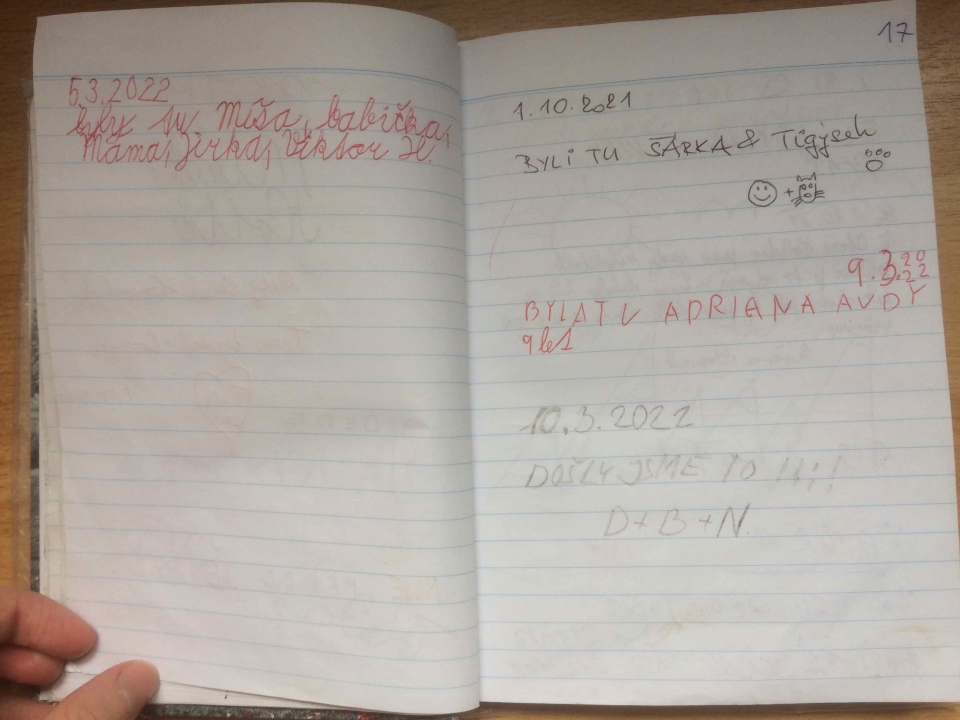 5.3.2022
byly tu Míša, babička,
Máma, Jirka, Viktor H.
17
1.10.2021
BYLI TU ŠÁRKA & Tigýsek
+
9.3.2022
BYLA TU ADRIANA AUDY
9 let
10.3.2022
DOŠLY JSME TO !!!!
D+B+N.